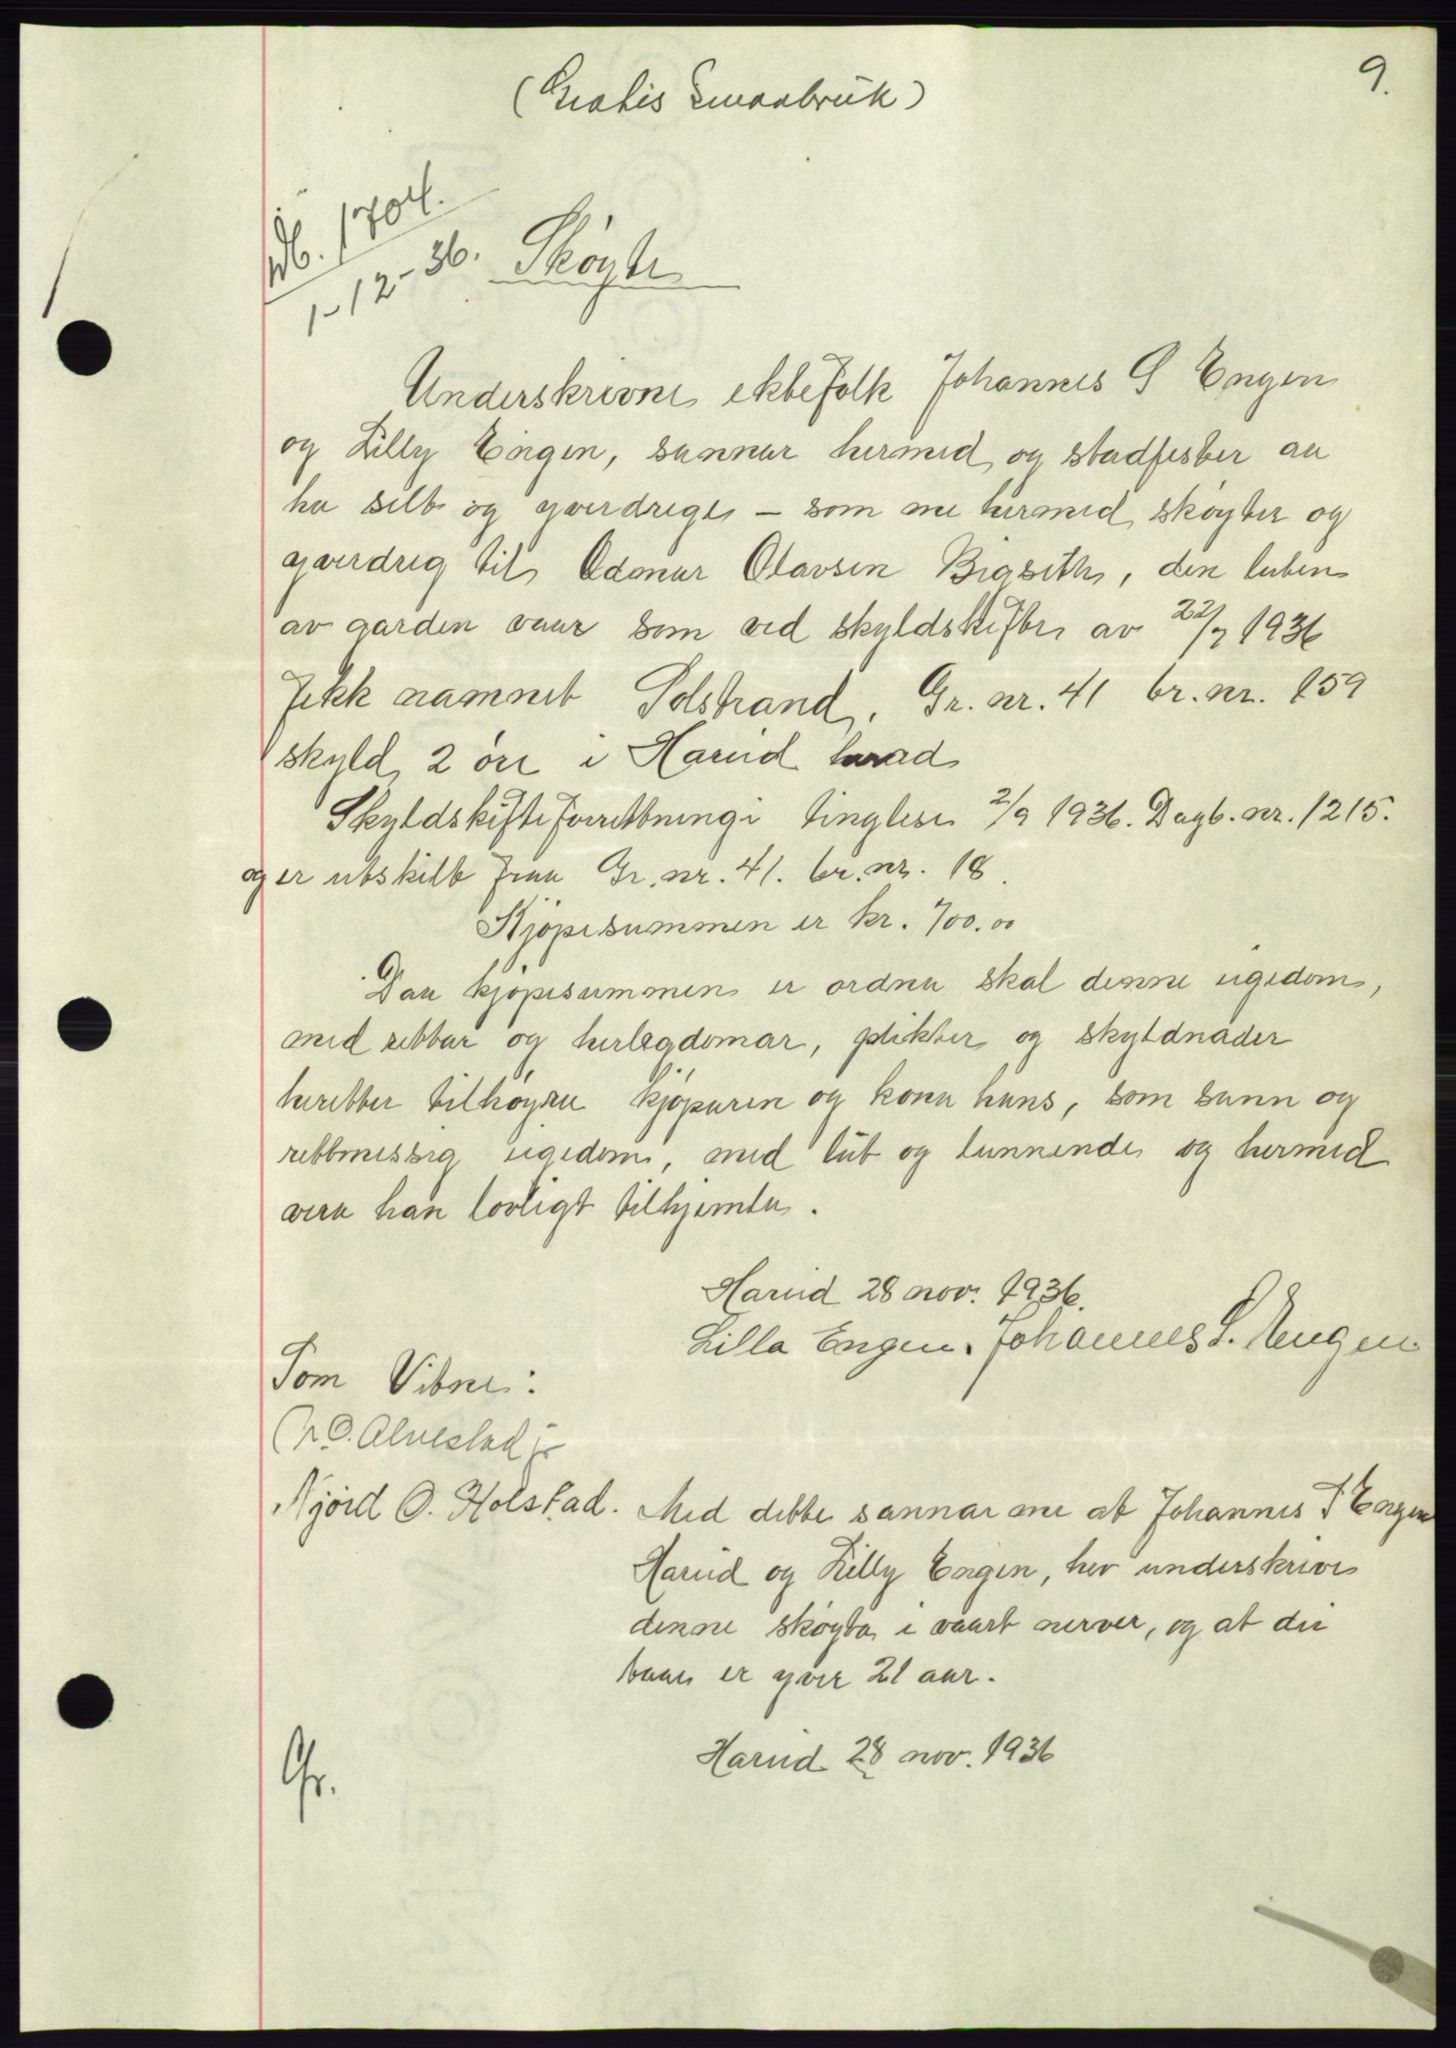 9.
(Gratis Smaabruk)
Db. 1704.
1-12-36. Skøyte
Underskrivne ektefolk Johannes S Engen
og Lilly Engen, sannar hermed og stadfester aa
ha selt og yverdrege – som me hermed skøyter og
yverdreg til Odmar Olavsen Bigseth, den luten
av garden vaar som ved skyldskifte av 22/7 1936
fekk namnet Solstrand. Gr. nr. 41 br. nr. 159
skyld 2 øre i Hareid herad
Skyldskifteforrettningi tinglese 2/9 1936. Dagb. nr. 1215.
og er utskilt fraa Gr. nr. 41. br. nr. 18.
Kjøpesummen er kr. 700.00
Daa kjøpesummen er ordna skal denne eigedom,
med rettar og herlegdomar, plikter og skyldnader
heretter tilhøyra kjøparen og kona hans, som sann og
rettmessig eigedom, med lut og lunnende og hermed
vera han lovligt tilhjemla.
Hareid 28 nov. 1936.
Lilla Engen. Johannes S. Engen
Som Vitne:
O. Alvestad jr
Njørd O. Holstad. Med dette sannar me at Johannes S Engen
Hareid og Lilly Engen, hev underskrive
denne skøyta i vaart nerver, og at dei
baae er yver 21 aar.
Hareid 28 nov. 1936
Gr.